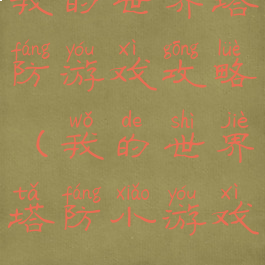 我的世界塔
fáng yóu xì gōng lüè
防游戏攻略
wǒ de shì jiè
（我的世界
tǎ fáng xiǎo yóu xì
塔防小游戏